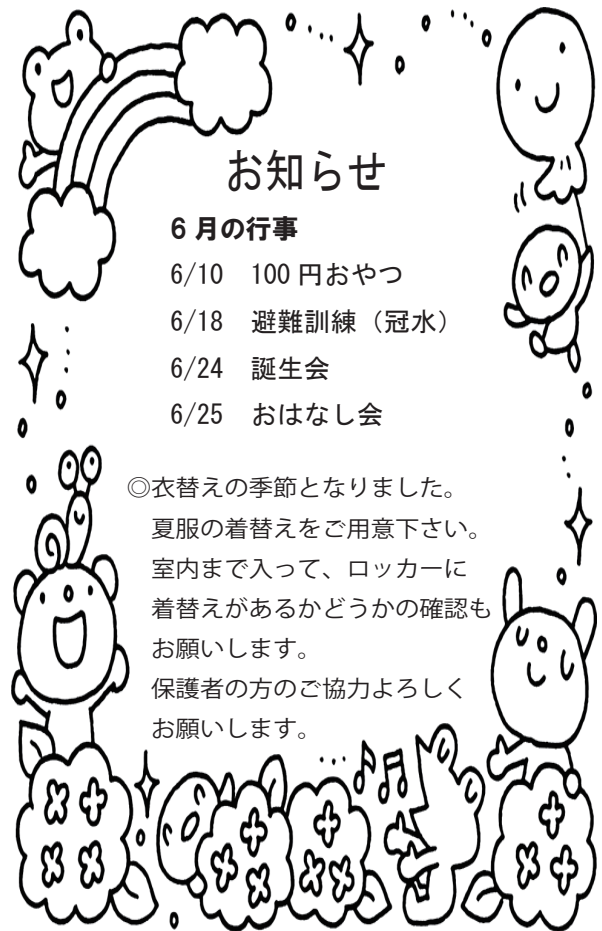 お知らせ
6月の行事
6/10　100円おやつ
6/18　避難訓練（冠水）
6/24　誕生会
6/25　おはなし会
◎衣替えの季節となりました。
夏服の着替えをご用意下さい。
室内まで入って、ロッカーに
着替えがあるかどうかの確認も
お願いします。
保護者の方のご協力よろしく
お願いします。